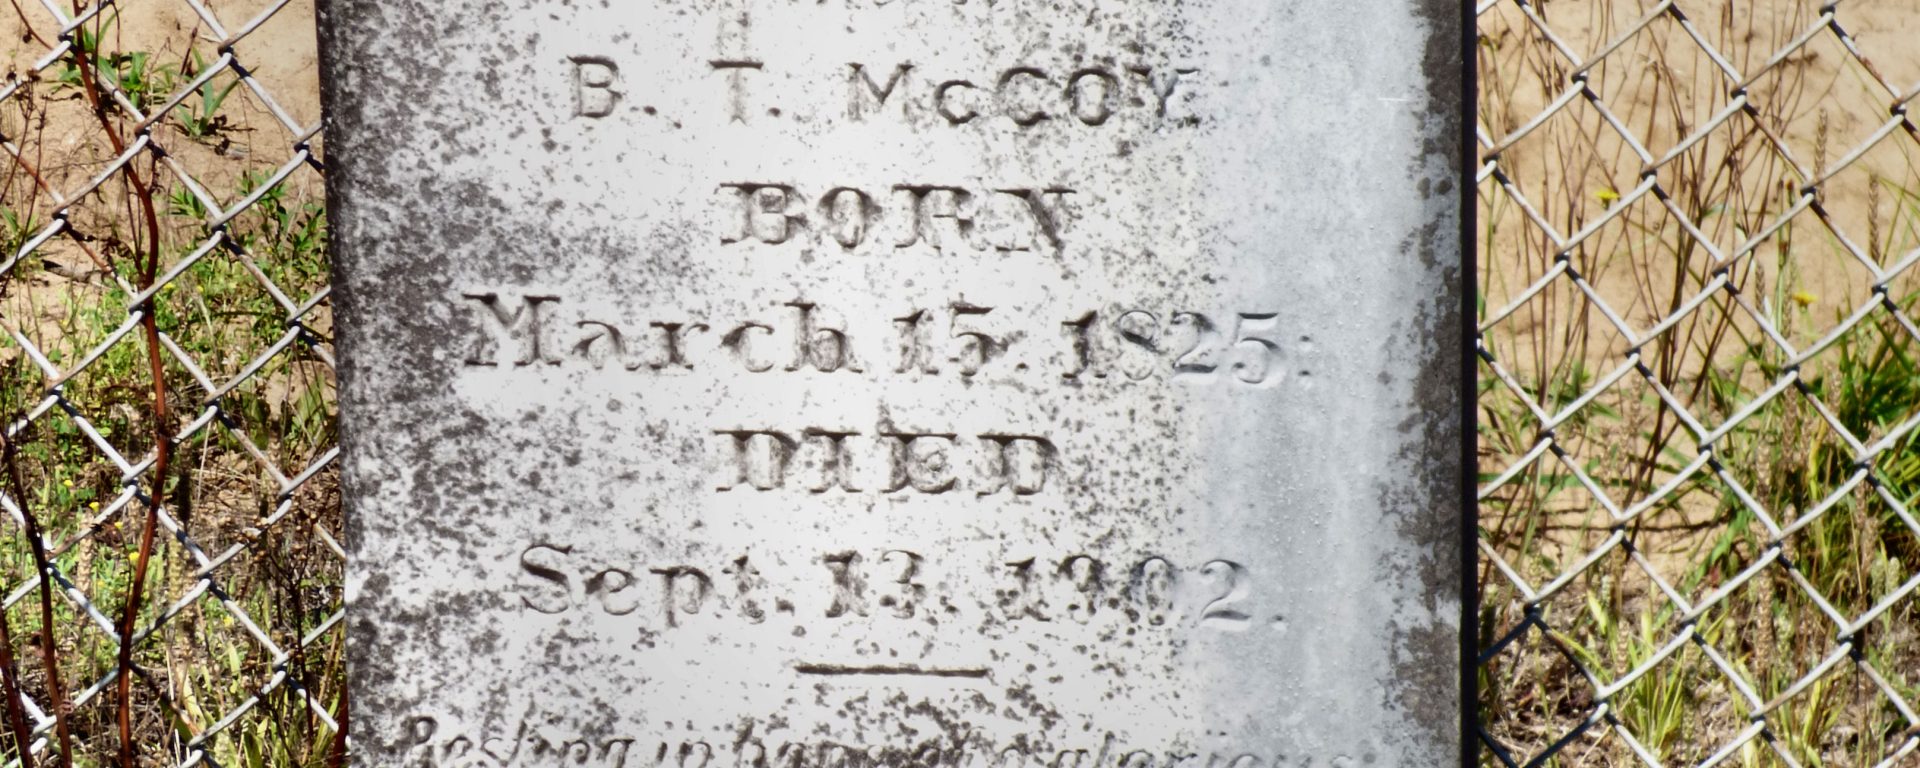 B. T. McCOY
BORN
March 15. 1825:
DIED
Sept. 13. 1902.
Resting in hope of a glorious